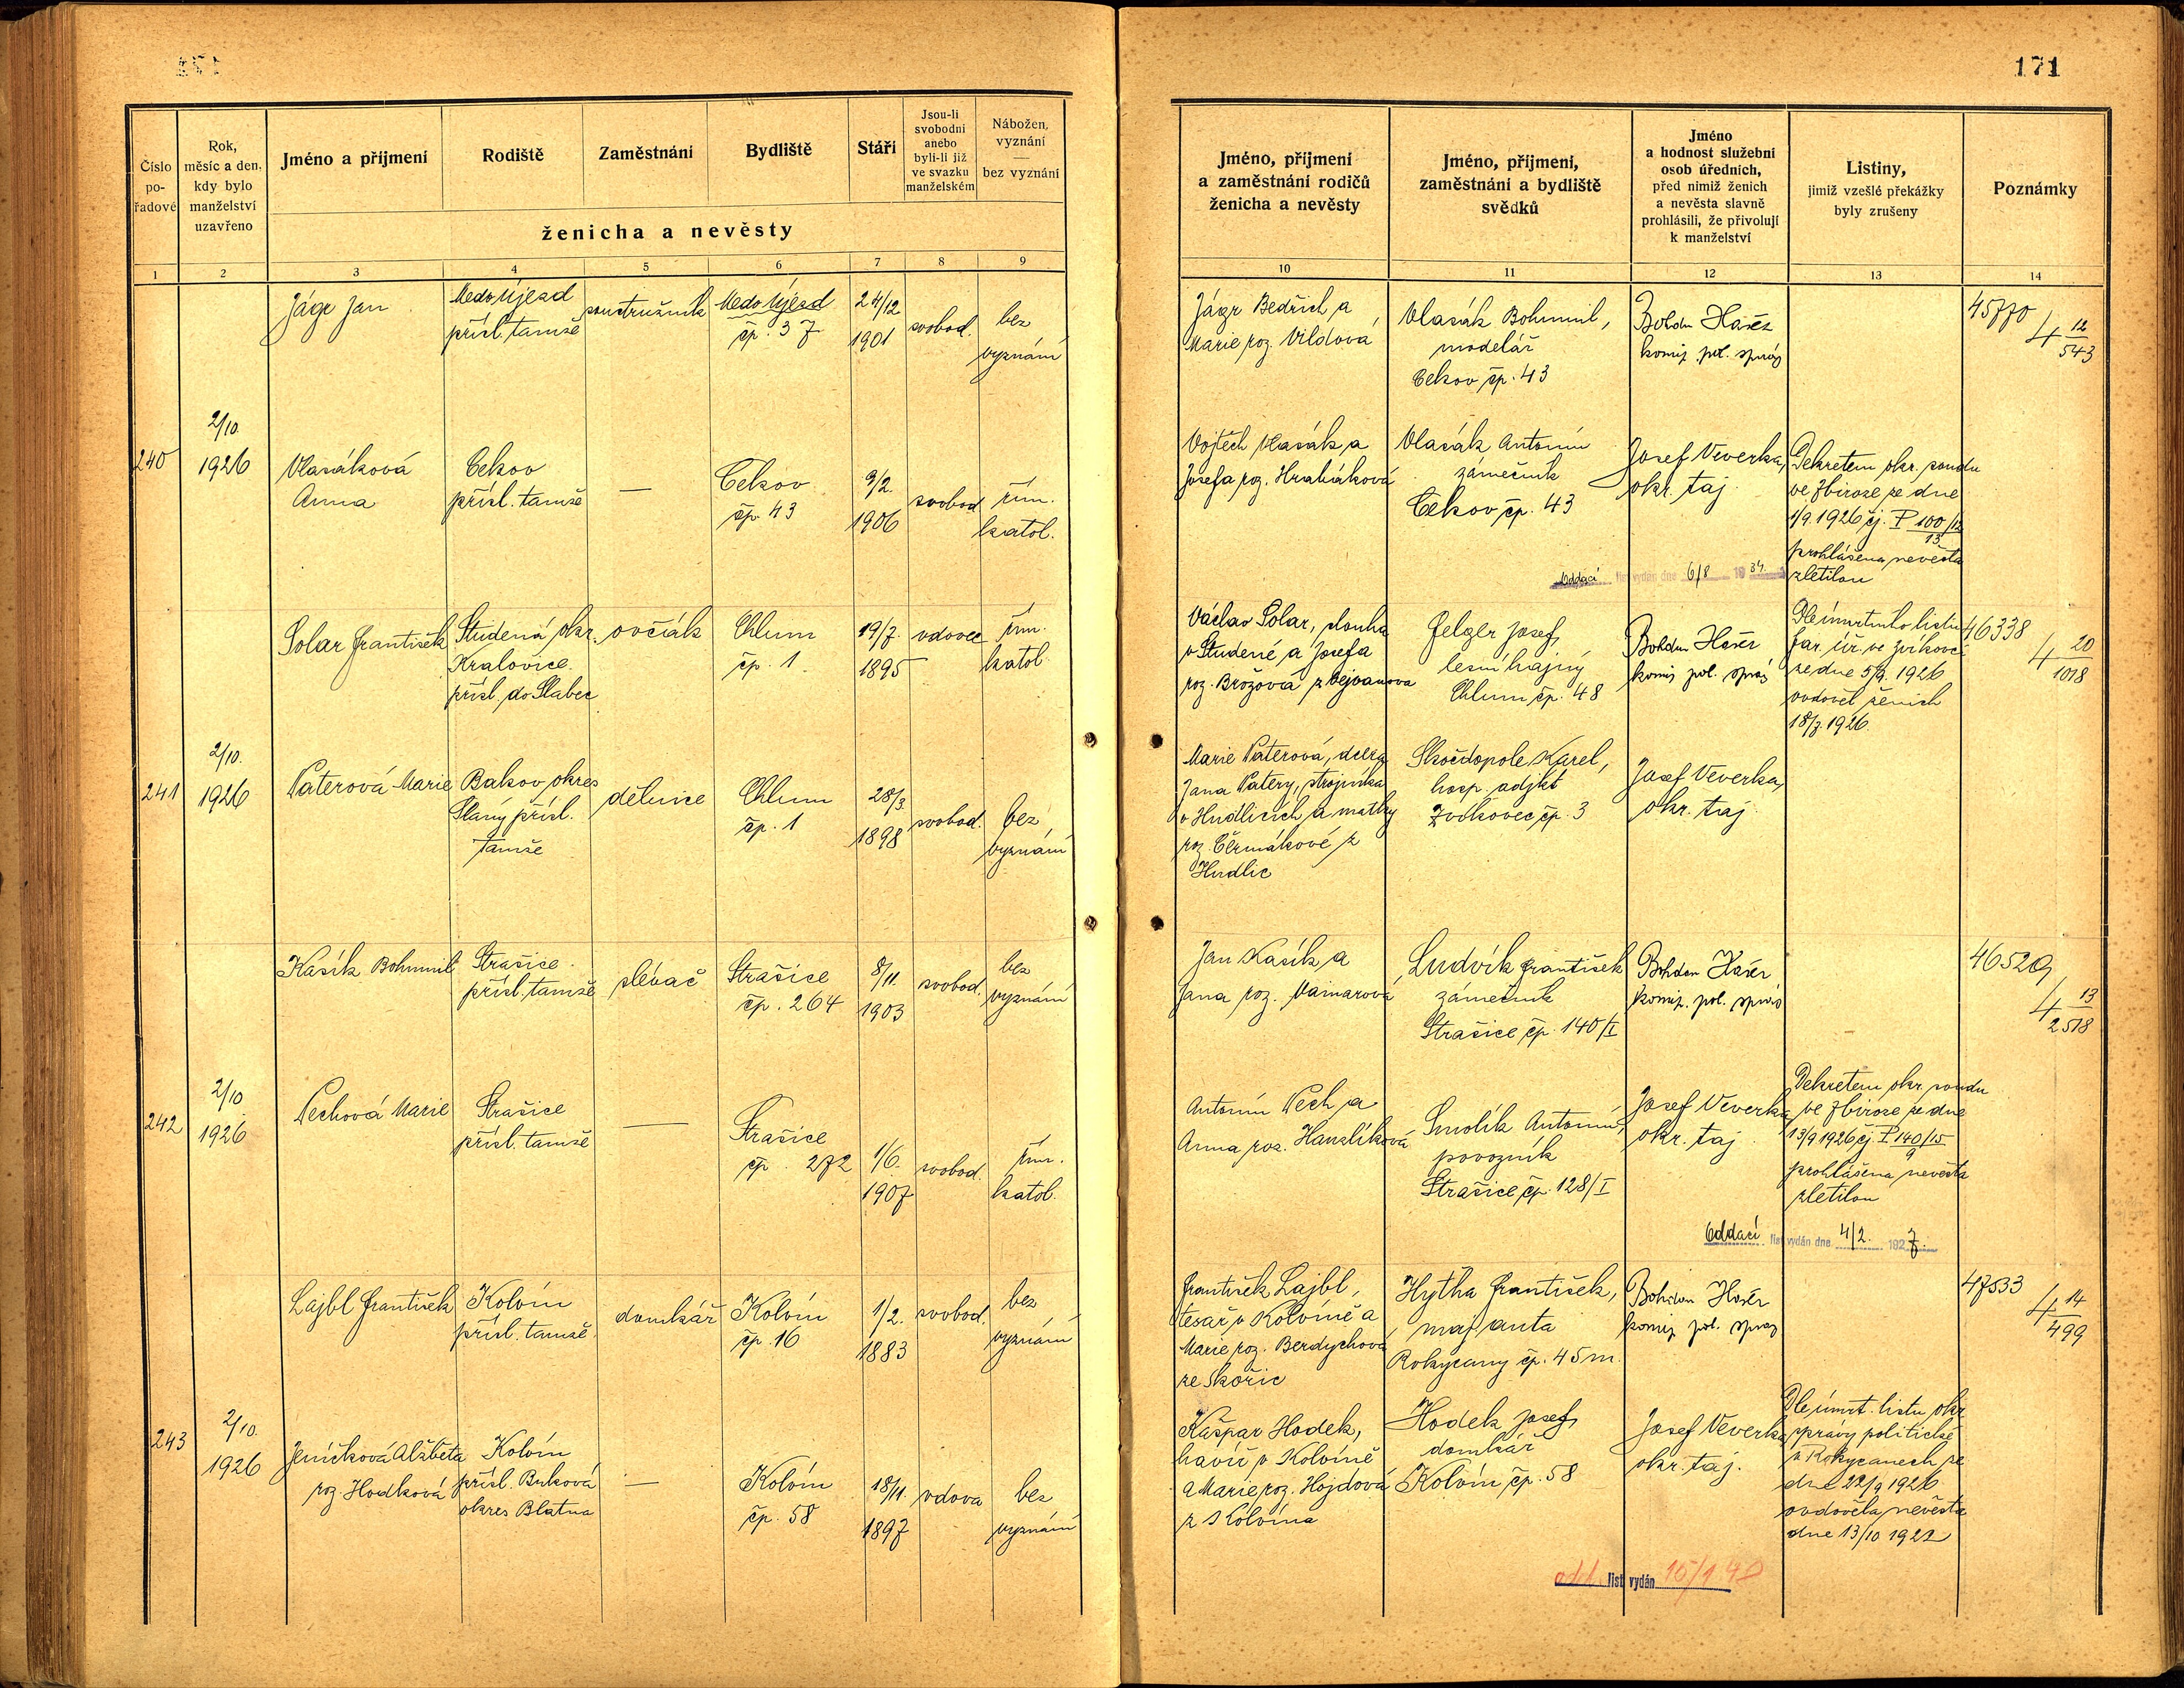 171
Číslo
po-
řadové
Rok,
měsíc a den,
kdy bylo
manželství
uzavřeno
Jméno a příjmení
Rodiště
Zaměstnání
Bydliště
Stáří
Jsou-li
svobodni
anebo
byli-li již
ve svazku
manželském
Nábožen.
vyznání
—
bez vyznání
ženicha a nevěsty
1
2
3
4
5
6
7
8
9
Jméno, příjmení
a zaměstnání rodičů
ženicha a nevěsty
Jméno, příjmení,
zaměstnání a bydliště
svědků
Jméno
a hodnost služební
osob úředních,
před nimiž ženich
a nevěsta slavně
prohlásili, že přivolují
k manželství
Listiny,
jimiž vzešlé překážky
byly zrušeny
Poznámky
10
11
12
13
14
240
2/10.
1926
Jágr Jan
Medo Újezd
přísl. tamže
soustružník
Medo Újezd
čp. 37
24/12
1901
svobod.
bez
vyznání
Jágr Bedřich a
Marie roz. Vildová
Vlasák Bohumil,
modelář
Cekov čp. 43
Bohdan Hašer
komis. pol. správ
45770
4 12/543
Vlasáková
Anna
Cekov
přísl. tamže
—
Cekov
čp. 43
9/2.
1906
svobod
řím.
katol.
Vojtěch Vlasák a
Josefa roz. Hrabáková
Vlasák Antonín
zámečník
Cekov čp. 43
Josef Veverka,
okr. taj.
Dekretem okr. soudu
ve Zbiroze ze dne
1/9. 1926 čj. P 100/12
13
prohlášena nevěsta
zletilou
Oddací list vydán dne 6/8 1934.
241
2/10.
1926
Solar František
Studená okr.
Kralovice.
přísl. do Slabec
ovčák
Chlum
čp. 1.
19/7.
1895
vdovec
řím.
katol.
Václav Solar, slouha
v Studené a Josefa
roz. Brožová z Vejvanova
Gelger Josef,
lesní hajný
Chlum čp. 48
Bohdan Hašer
komis pol. správ
Dle úmrtního listu
far. úř. ve Zvíkovci
ze dne 5/9. 1926
ovdověl ženich
18/7. 1926.
46338
4 20/1018
Paterová Marie
Bakov, okres
Slaný přísl.
tamže
dělnice
Chlum
čp. 1
28/3.
1898
svobod.
bez
vyznání
Marie Paterová, dcera
Jana Patery, strojníka
v Hudlicích a matky
roz. Čermákové z
Hudlic
Skočdopole Karel,
hosp. adjkt
Zvíkovec čp. 3
Josef Veverka,
okr. taj.
242
2/10
1926
Kasík Bohumil
Strašice.
přísl. tamže
slévač
Strašice
čp. 264
8/11.
1903
svobod.
bez
vyznání
Jan Kasík a
Jana roz. Vainarová
Ludvík František
zámečník
Strašice čp. 140/I
Bohdan Hašer
komis. pol. správ
46529
4 13/2518
Pechová Marie
Strašice
přísl. tamže
—
Strašice
čp. 272
1/6.
1907
svobod.
řím.
katol.
Antonín Pech a
Anna roz. Hanzlíková
Smolík Antonín,
povozník
Strašice čp. 128/I
Josef Veverka
okr. taj.
Dekretem okr. soudu
ve Zbiroze ze dne
13/9 1926 čj. P 140/15
9
prohlášena nevěsta
zletilou
Oddací list vydán dne 4/2. 1927.
243
2/10.
1926
Lajbl František
Kolvín
přísl. tamže.
domkář
Kolvín
čp. 16
1/2.
1883
svobod.
bez
vyznání
František Lajbl,
tesař v Kolvíně a
Marie roz. Berdychová
ze Skořic
Hytha František,
maj. auta
Rokycany čp. 45 m.
Bohdan Hašer
komis pol. správ
47533
4 14/499
Jeníčková Alžběta
roz. Hodková
Kolvín
přísl. Buková
okres Blatná
—
Kolvín
čp. 58
18/11.
1897
vdova
bez
vyznání
Kašpar Hodek,
havíř v Kolvíně
a Marie roz. Hojdová
z Kolvína
Hodek Josef,
domkář
Kolvín čp. 58
Josef Veverka
okr. taj.
Dle úmrt. listu okr.
správy politické
v Rokycanech ze
dne 22/9 1926
ovdověla nevěsta
dne 13/10 1922
odd. list vydán 15/1 40